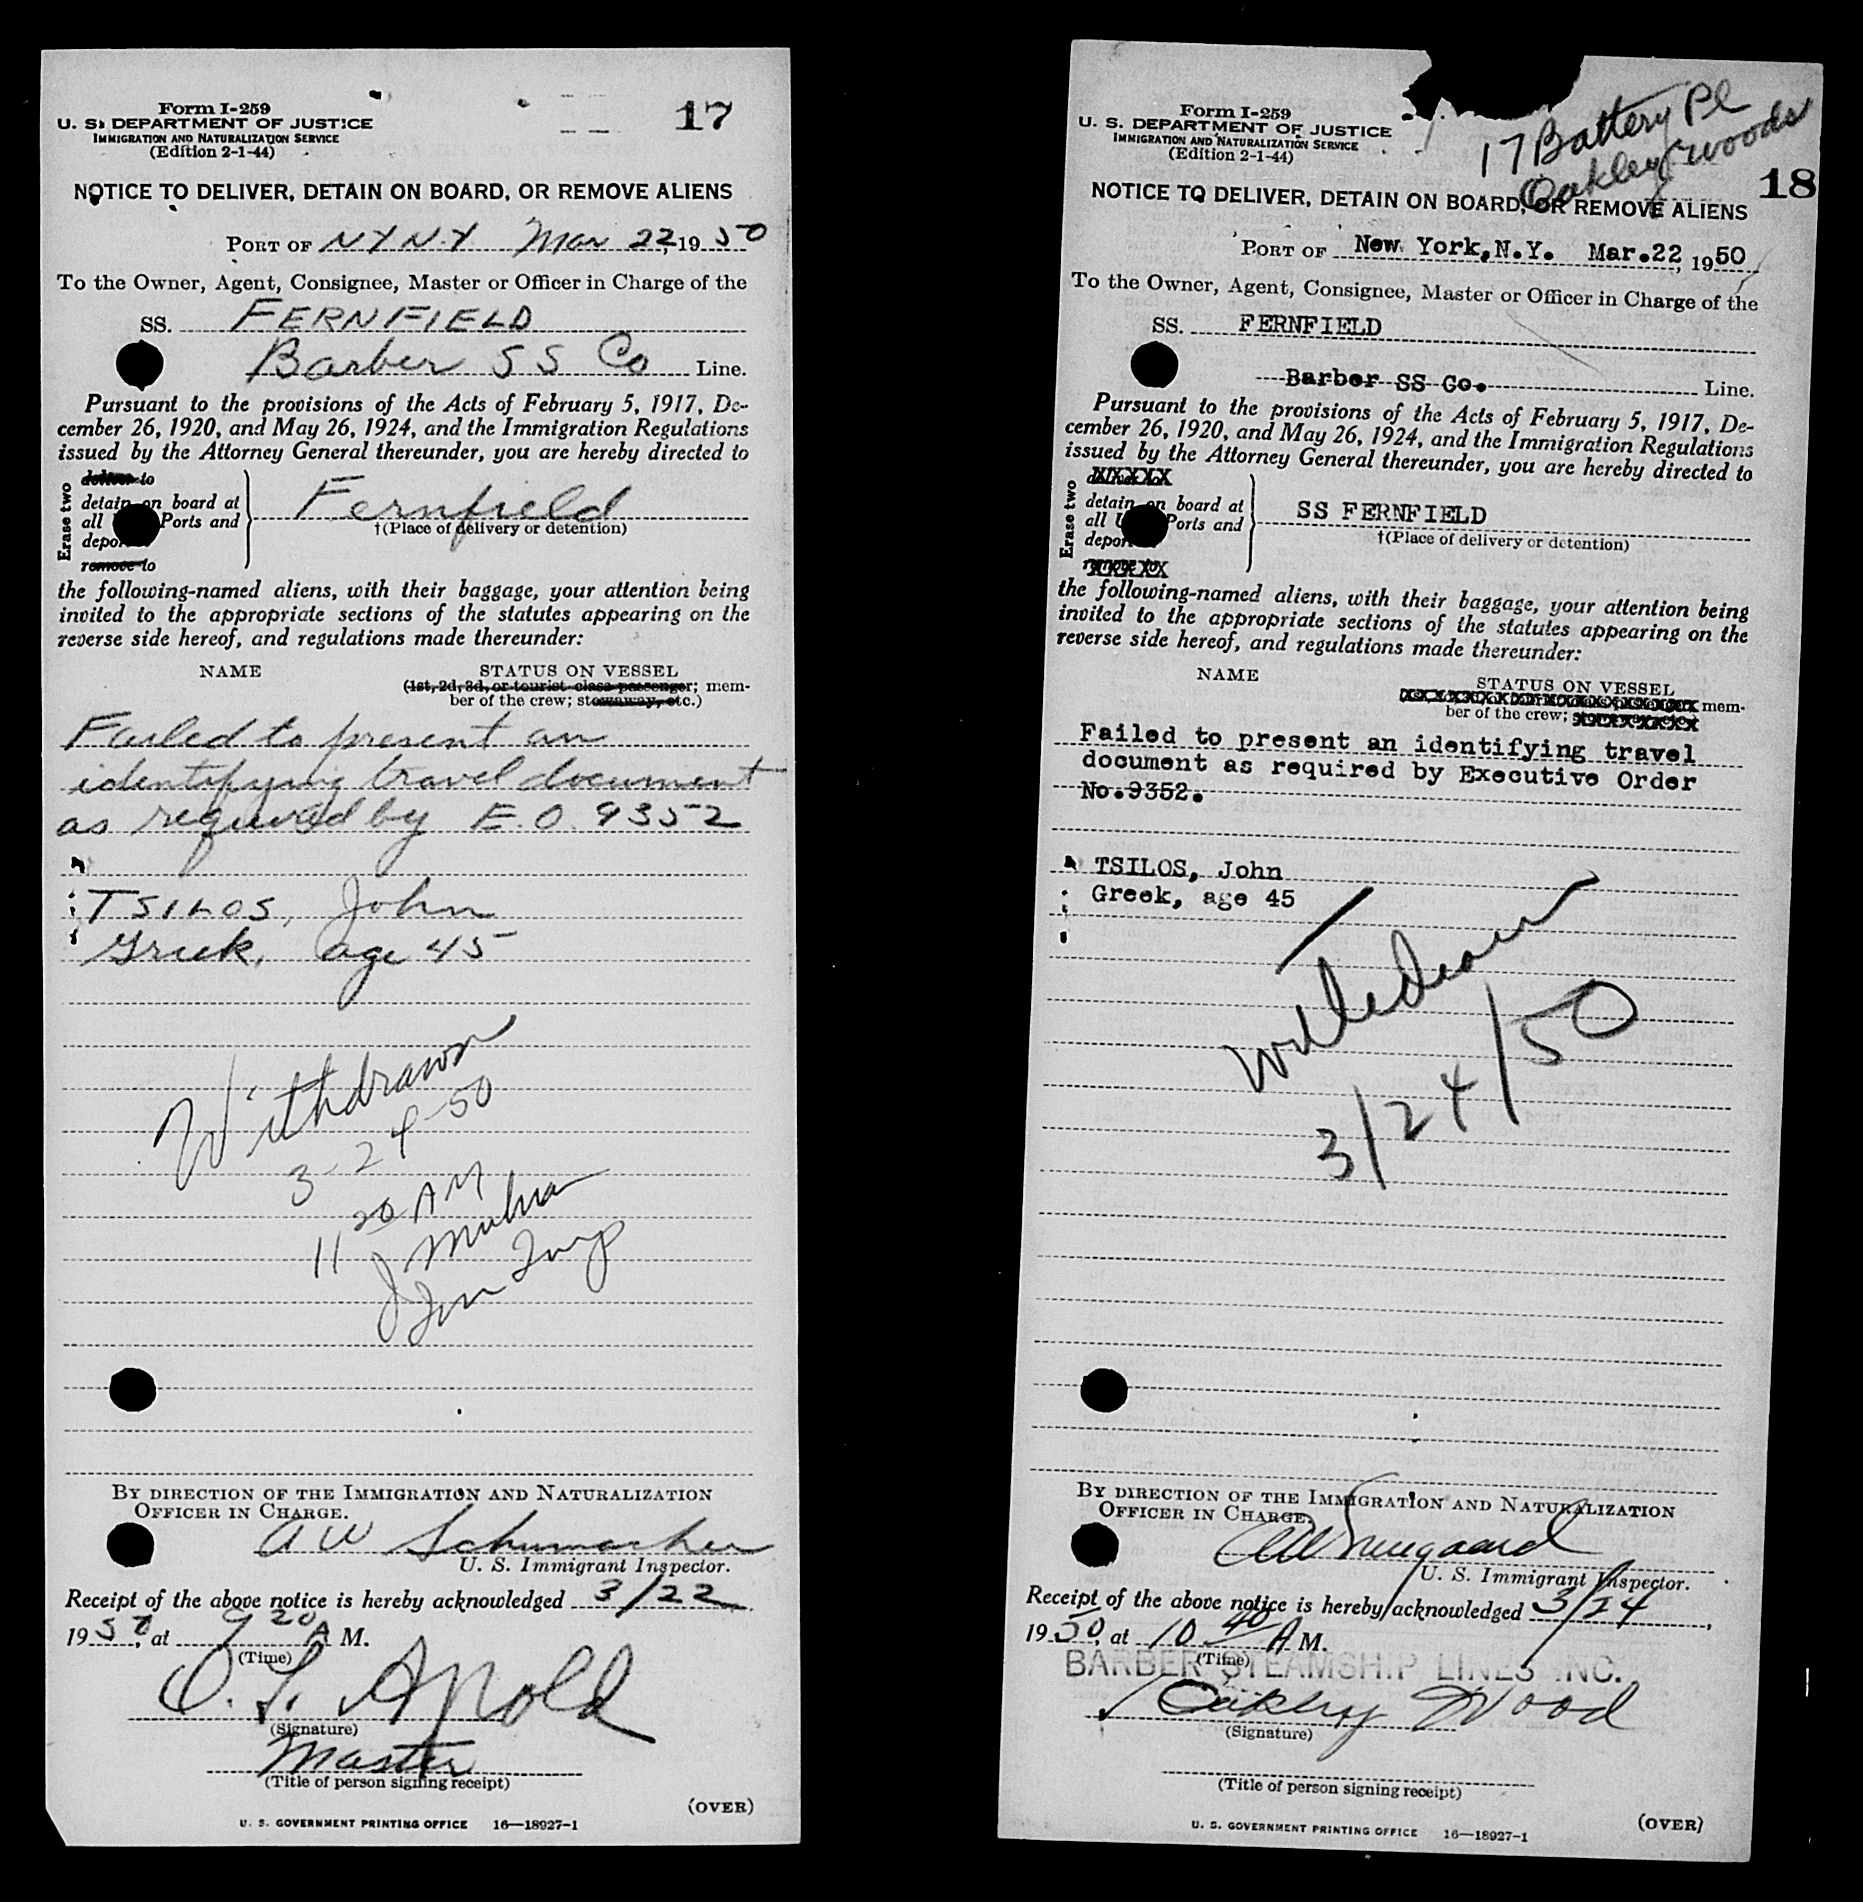 Form I-259
U. S. DEPARTMENT OF JUSTICE
IMMIGRATION AND NATURALIZATION SERVICE
(Edition 2-1-44)
17
NOTICE TO DELIVER, DETAIN ON BOARD, OR REMOVE ALIENS
PORT OF N Y N.Y Mar 22, 19 50
To the Owner, Agent, Consignee, Master or Officer in Charge of the
SS. FERNFIELD
Barber S S Co Line.
Pursuant to the provisions of the Acts of February 5, 1917, De-
cember 26, 1920, and May 26, 1924, and the Immigration Regulations
issued by the Attorney General thereunder, you are hereby directed to
Erase two
deliver to
detain on board at
all Ports and
depor
remove to
Fernfield
†(Place of delivery or detention)
the following-named aliens, with their baggage, your attention being
invited to the appropriate sections of the statutes appearing on the
reverse side hereof, and regulations made thereunder:
NAME STATUS ON VESSEL
(1st, 2d, 3d, or tourist class passenger; mem-
ber of the crew; stowaway, etc.)
Failed to present an
identifying travel document
as required by E.O. 9352
TSILOS, John
Greek, age 45
Withdrawn
3-24-50
11 20 AM
J
Imm Insp
BY DIRECTION OF THE IMMIGRATION AND NATURALIZATION
OFFICER IN CHARGE.
A W Schumacher
U. S. Immigrant Inspector.
Receipt of the above notice is hereby acknowledged 3/22
19 50, at 9 20 A M.
(Time)
O. L. Arnold
(Signature)
Master
(Title of person signing receipt)
(OVER)
U. S. GOVERNMENT PRINTING OFFICE 16—18927-1
Form I-259
U. S. DEPARTMENT OF JUSTICE
IMMIGRATION AND NATURALIZATION SERVICE
(Edition 2-1-44)
17 Battery Pl
Oakley Woods
18
NOTICE TO DELIVER, DETAIN ON BOARD, OR REMOVE ALIENS
PORT OF New York, N.Y. Mar.22, 1950
To the Owner, Agent, Consignee, Master or Officer in Charge of the
SS. FERNFIELD
Barber SS Co. Line.
Pursuant to the provisions of the Acts of February 5, 1917, De-
cember 26, 1920, and May 26, 1924, and the Immigration Regulations
issued by the Attorney General thereunder, you are hereby directed to
Erase two
detain on board at
all U Ports and
depor
SS FERNFIELD
†(Place of delivery or detention)
the following-named aliens, with their baggage, your attention being
invited to the appropriate sections of the statutes appearing on the
reverse side hereof, and regulations made thereunder:
NAME STATUS ON VESSEL
mem-
ber of the crew;
Failed to present an identifying travel
document as required by Executive Order
No.9352.
TSILOS, John
Greek, age 45
Withdrawn
3/24/50
BY DIRECTION OF THE IMMIGRATION AND NATURALIZATION
OFFICER IN CHARGE.
U. S. Immigrant Inspector.
Receipt of the above notice is hereby acknowledged 3/24,
19 50, at 10 40 A M.
(Time)
BARBER STEAMSHIP LINES INC.
Oakley Wood
(Signature)
(Title of person signing receipt)
(OVER)
U. S. GOVERNMENT PRINTING OFFICE 16—18927-1